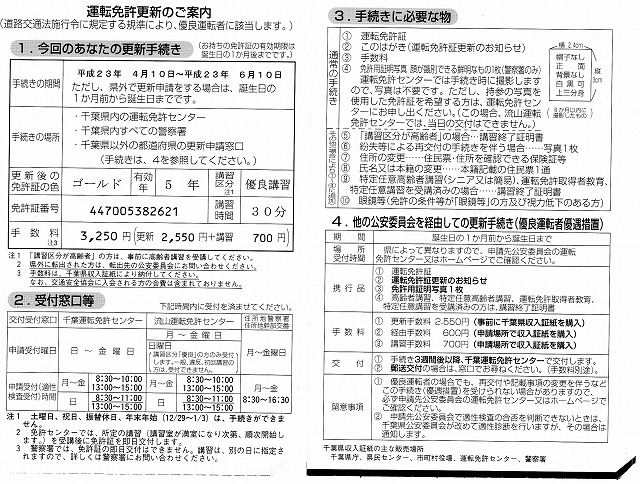 運転免許更新のご案内
(道路交通法施行令に規定する規準により、優良運転者に該当します。)
1.今回のあなたの更新手続き
(お持ちの免許証の有効期限は
誕生日の1か月後までです。)
手続きの期間
平成23年 4月10日～平成23年 6月10日
ただし、県外で更新申請をする場合は、誕生日の
1か月前から誕生日までです。
手続きの場所
・千葉県内の運転免許センター
・千葉県内すべての警察署
・千葉県以外の都道府県の更新申請窓口
(手続きは、4を参照してください。)
更新後の
免許証の色
ゴールド
有効
年
5 年
講習
区分
注1
優良講習
免許証番号
447005382621
講習
時間
30分
手数料
注3
3,250円(更新 2,550円+講習 700円)
注1 「講習区分が高齢者」の方は、事前に高齢者講習を受講してください。
2 県外に転出された方は、転出先の公安委員会にお問い合わせください。
3 手数料は、千葉県収入証紙により納付してください。
なお、交通安全協会に入会される方の会費は含まれておりません。
2.受付窓口等
下記時間内に受付を済ませてください。
交付受付窓口
千葉運転免許センター
流山運転免許センター
住所地警察署
住所地幹部交番
申請受付曜日
日 ～ 金 曜日
月 ～ 金 曜日
日曜日
(講習区分「優良」の方のみ受付
します。一般、違反、初回講習の
方は、受付できません。)
月～金曜日
申請受付(適性
検査受付)時間
月～金
8:30～10:00
13:00～15:00
日
8:30～11:00
13:00～15:00
月～金
8:30～10:00
13:00～15:00
日
8:30～11:00
13:00～15:00
8:30～16:30
注1 土曜日、祝日、振替休日、年末年始(12/29～1/3)は、手続きができま
せん。
2 免許センターでは、所定の講習(講習室が満室になり次第、順次開始し
ます。)を受講後に免許証を即日交付します。
3 警察署では、免許証の即日交付はできません。講習は、別の日に指定さ
れますので、詳しくは警察署にお問い合わせください。
3.手続きに必要な物
通常の手続き
① 運転免許証
② このはがき(運転免許証更新のお知らせ)
③ 手数料
④ 免許証用証明写真 顔が識別できる鮮明なもの1枚(警察署のみ)
運転免許センターでは手続き時に撮影します
ので、写真は不要です。ただし、持参の写真を
使用した免許証を希望する方は、運転免許セン
ターにお申し出ください。(この場合、流山運転
免許センターでは、当日の交付はできません。)
横 2.4cm
帽子なし
正 面
背景なし
白黒可
上三分身
縦
3cm
(3か月以内に
撮影したもの)
⑤ 「講習区分が高齢者」の場合…講習終了証明書
⑥ 紛失等による再交付の手続きを伴う場合……写真1枚
⑦ 住所の変更……住民票・住所を確認できる保険証等
⑧ 氏名又は本籍の変更……本籍記載の住民票1通
⑨ 特定任意高齢者講習(シニア又は簡易)、運転免許取得者教育、
特定任意講習を受講済みの場合……講習終了証明書
⑩ 眼鏡等(免許の条件等が「眼鏡等」の方及び視力低下のある方)
4.他の公安委員会を経由しての更新手続き(優良運転者優遇措置)
期 間
誕生日の1か月前から誕生日まで
場 所
受付時間
県によって異なりますので、申請先公安委員会の運転
免許センター又はホームページでご確認ください。
携行品
① 運転免許証
② 運転免許証更新のお知らせ
③ 免許用証明写真1枚
④ 高齢者講習、特定任意高齢者講習、運転免許取得者教育、
特定任意講習を受講済の方は、講習終了証明書
手数料
① 更新手数料 2,550円(事前に千葉県収入証紙を購入)
② 経由手数料 600円(申請場所で収入証紙を購入)
③ 講習手数料 700円(申請場所で収入証紙を購入)
交 付
① 手続き3週間後以降、千葉運転免許センターで交付します。
② 郵送交付の場合は、窓口でお尋ねください。(手数料別途)
留意事項
① 優良運転者の場合でも、再交付や記載事項の変更を伴うなど
この手続き(優遇措置)を受けられない場合がありますので、
必ず申請先公安委員会の運転免許センター又はホームページで
ご確認ください。
② 申請先公安委員会で適性検査の合否を判断できないときは、
千葉県公安委員会が改めて適性診断を行いますが、その場合は
通知します。
千葉県収入証紙の主な販売場所
千葉県庁、県民センター、市町村役場、運転免許センター、警察署